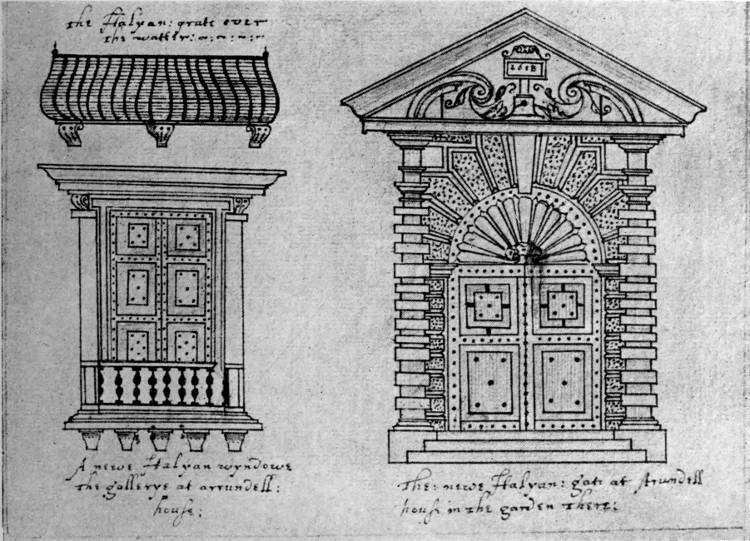 the Italyan: grate over
the watter:
1618
A newe Italyan wyndowe
the gallerye at arrundell:
house:
The: newe Italyan: gate at Arundell
house in the garden there: